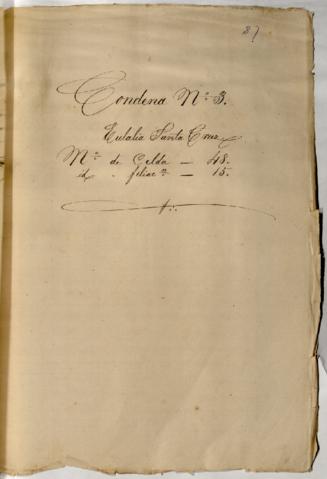 87
Condena Nº 3.
Eulalia Santa Cruz
Nº de Celda — 48.
id . filiacn — 15.